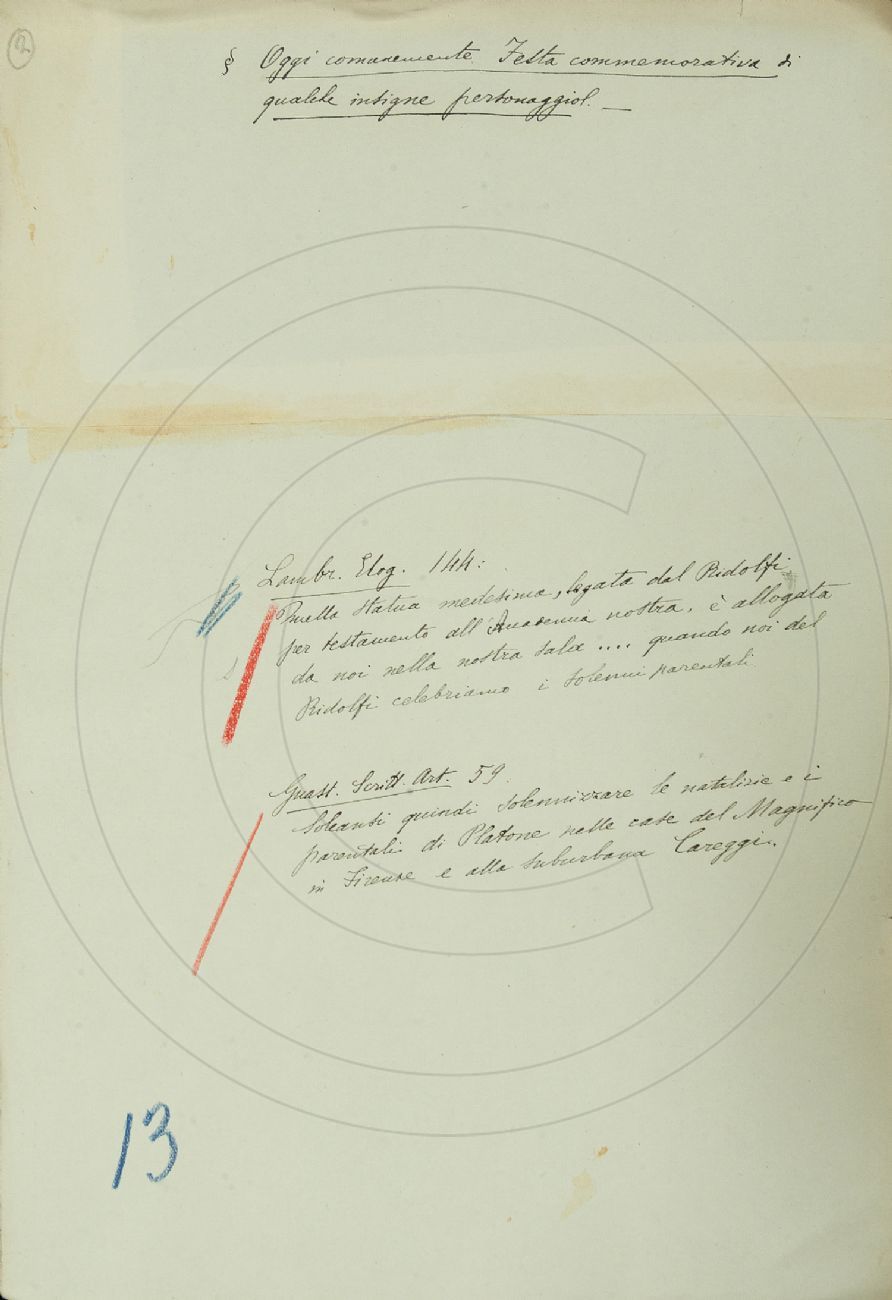 2
§ Oggi comunemente Festa commemorativa di
qualche insigne personaggio. —
Lambr. Elog. 144:
Quella statua medesima, legata dal Ridolfi
per testamento all'Accademia nostra, è allogata
da noi nella nostra sala .... quando noi del
Ridolfi celebriamo i solenni parentali.
Guast. Scritt. Art. 59.
Soleansi quindi solennizzare le natalizie e i
parentali di Platone nelle case del Magnifico
in Firenze e alla suburbana Careggi.
13